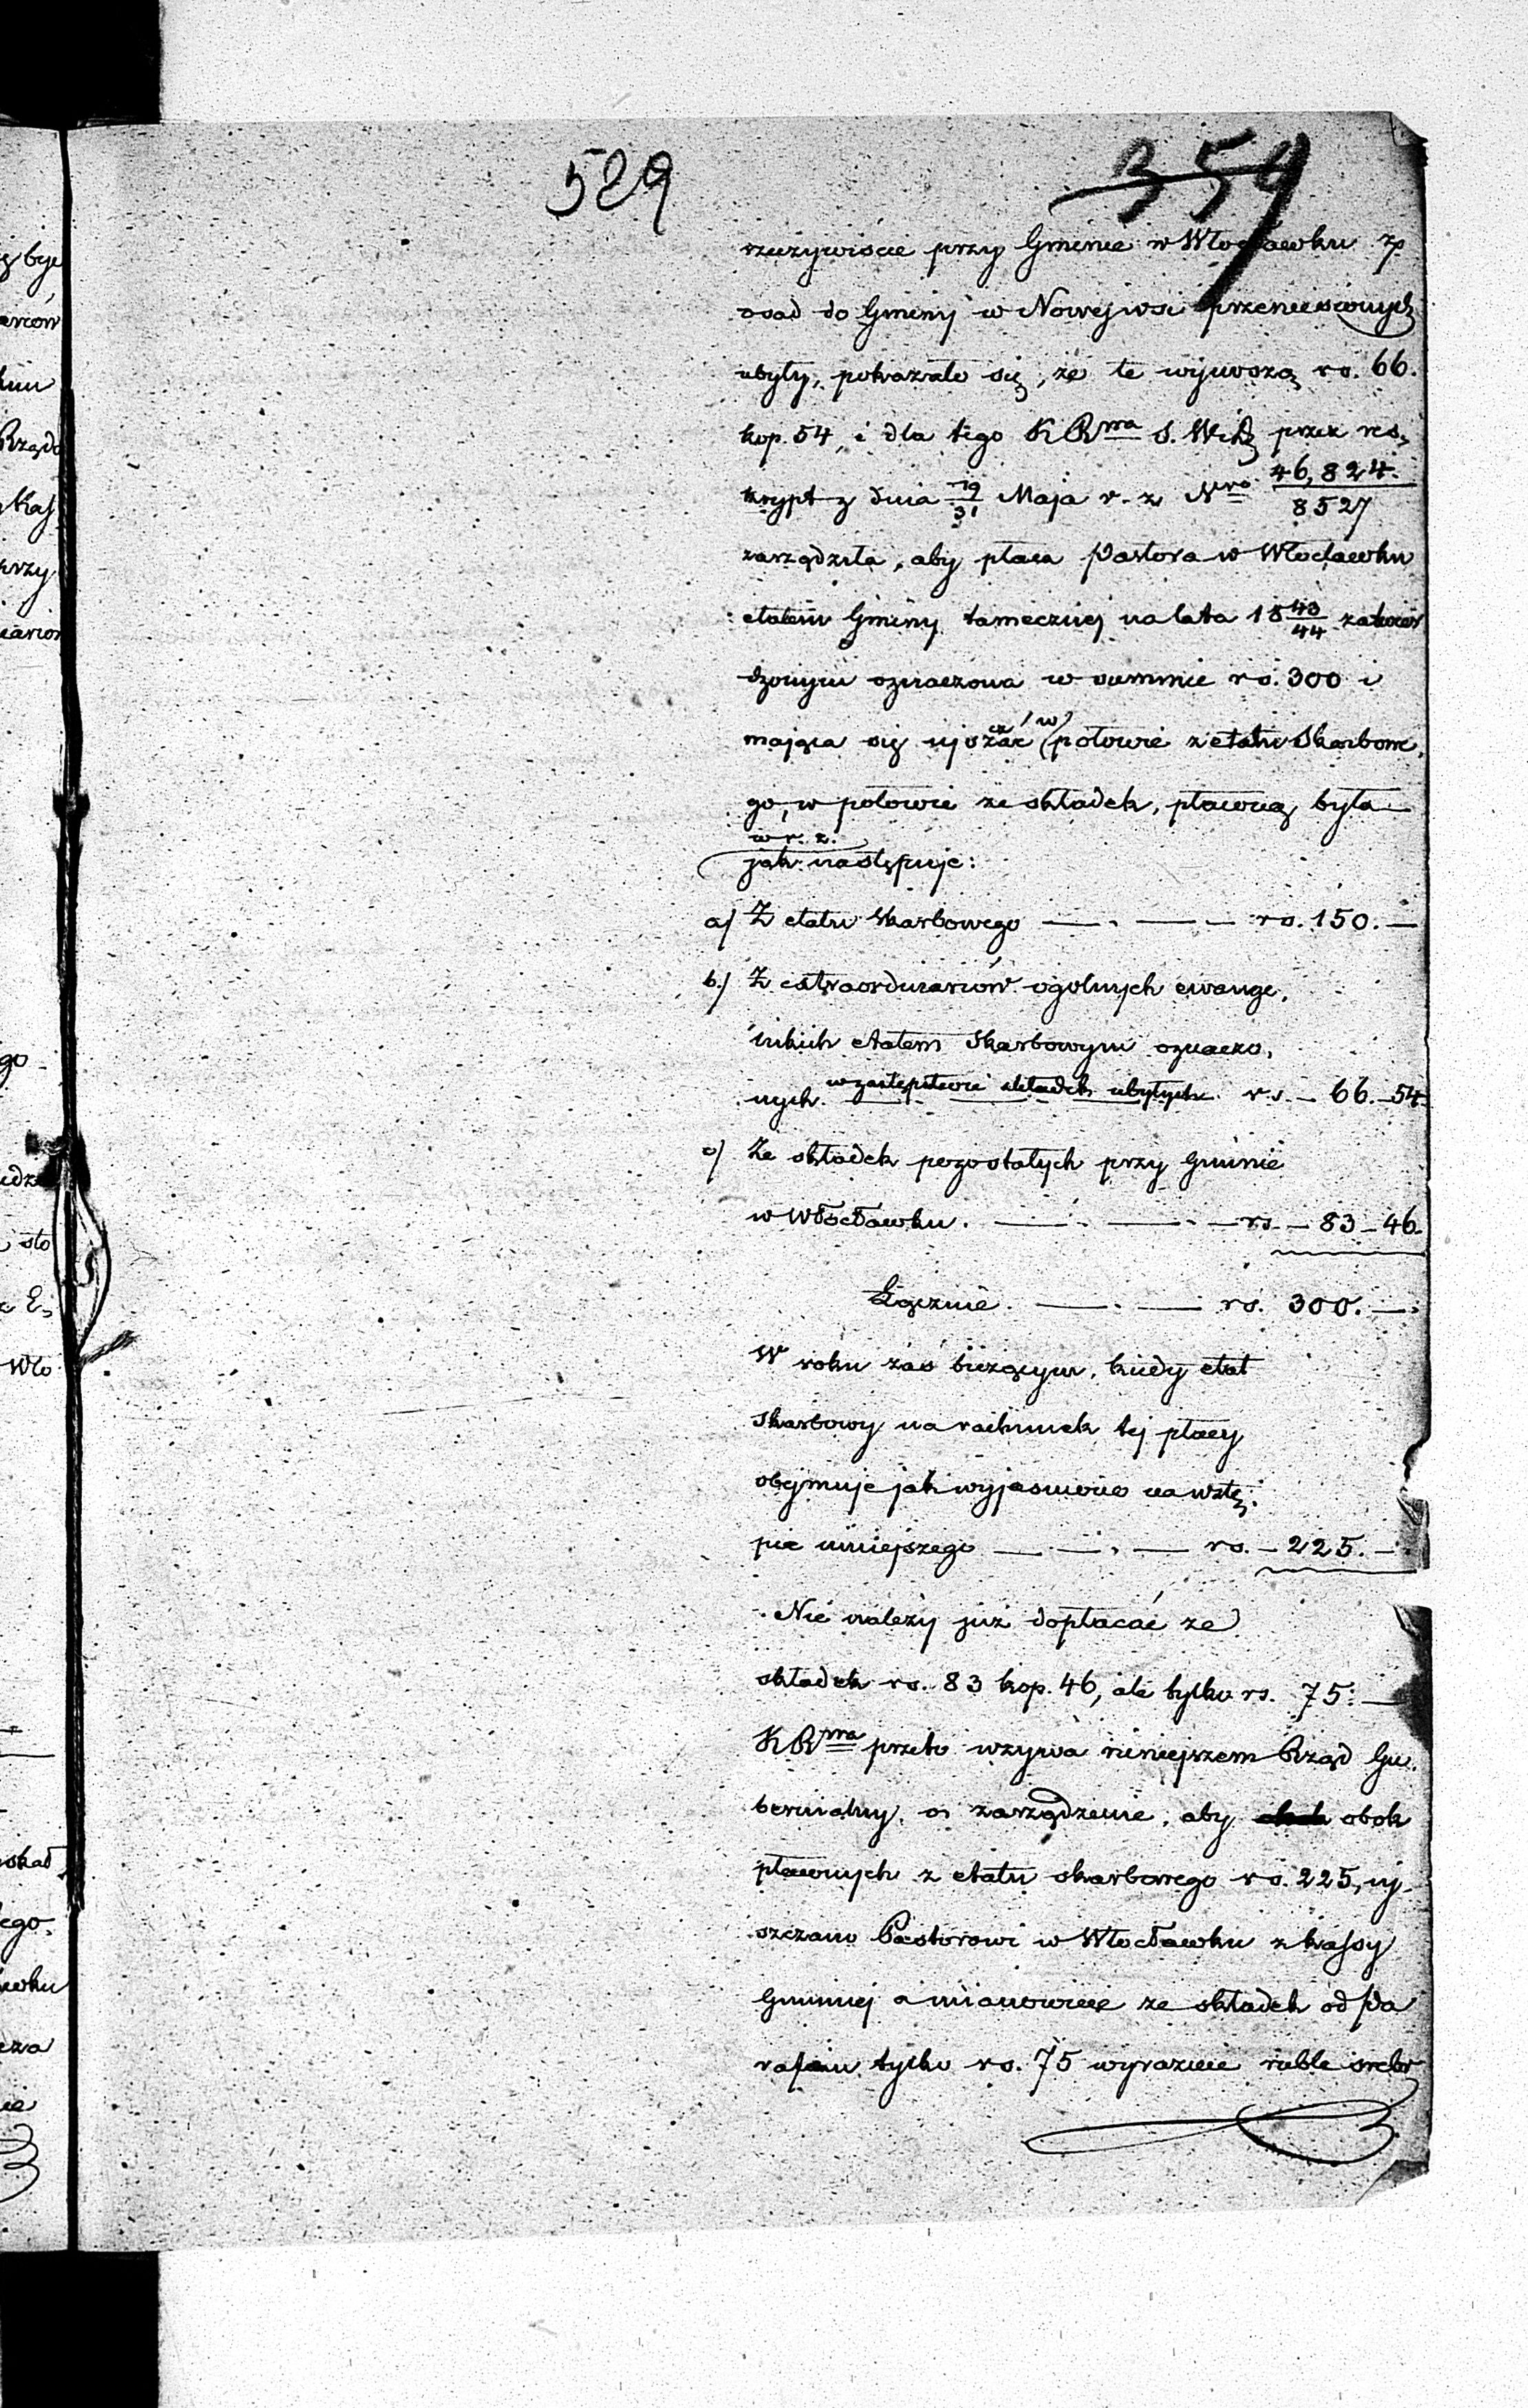 529
359
rzeczywiście przy Gminie w Włocławku z
osad do Gminy w Nowejwsi przeniesionych
ubyły, pokazało się, że te wynoszą rs. 66.
kop. 54, i dla tego K R wa S. W i D przez res,
krypt z dnia 19/31 Maja r. z. Nro 46,824/8527
zarządziła, aby płaca Pastora w Włocławku
etatem Gminy tamecznej na lata 18 43/44 zatwier
dzonym oznaczona w summie rs. 300 i
mająca się uiszczać (w) połowie z etatu Skarbowe,
go, w połowie ze składek, płaconą była
w r. z.
jak następuje:
a) Z etatu Skarbowego — . — — rs. 150. —
b.) Z extraordinariów ogolnych ewange,
lickich etatem Skarbowym oznaczo,
nych. w zastępstwie składek ubyłych rs. — 66. — 54.
c) Ze składek pozostałych przy Gminie
w Włocławku. — . — . — rs. — 83 — 46.
Łącznie. — . — rs. 300. —
W roku zaś bieżącym, kiedy etat
Skarbowy na rachunek tej płacy
obejmuje jak wyjaśniono na wstę,
pie niniejszego — — . — rs. — 225. —
Nie należy już dopłacać ze
składek rs. 83 kop. 46, ale tylko rs. 75. —
K R wa przeto wzywa niniejszem Rząd Gu,
bernialny, o zarządzenie, aby obok
płaconych z etatu skarbowego rs. 225, uj,
szczano Pastorowi w Włocławku z kassy
Gminnej a mianowicie ze składek od Pa
rafian tylko rs. 75 wyraznie ruble srebr